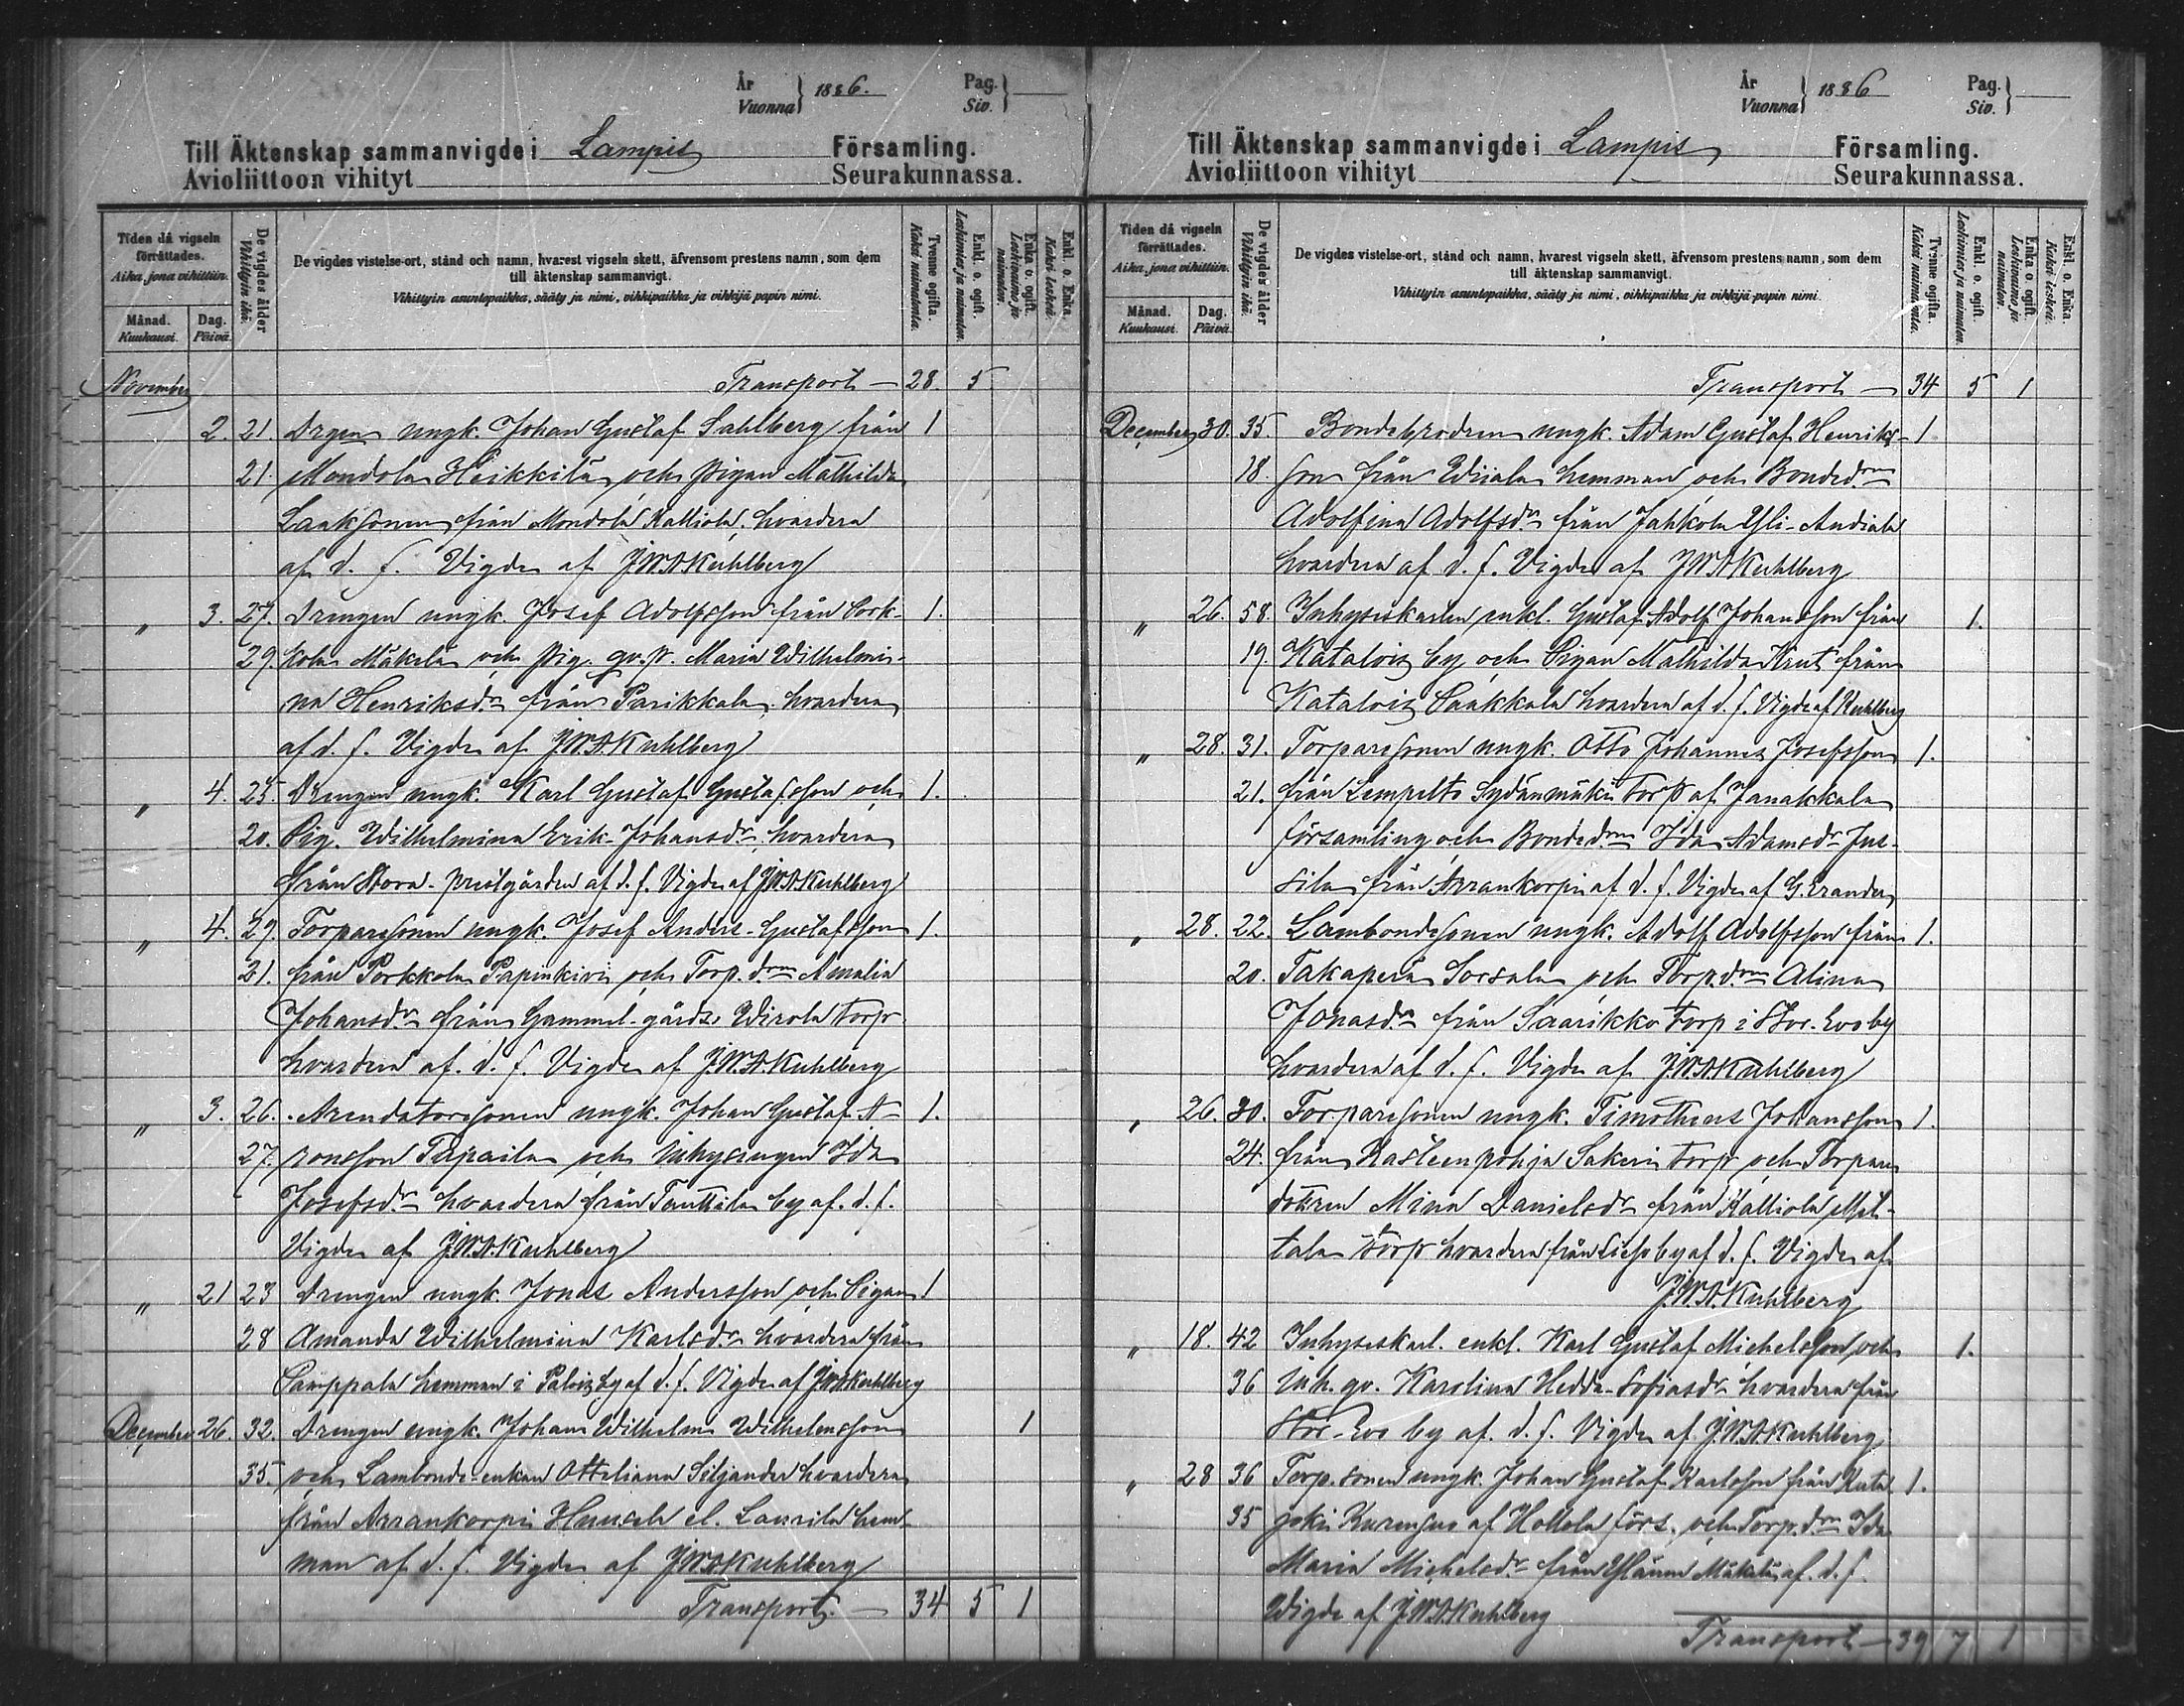 År
Vuonna } 1886.
Pag.
Siv. }
Till Äktenskap sammanvigde i Lampis Församling.
Avioliittoon vihityt Seurakunnassa.
Tiden då vigseln förrättades.
Aika, jona vihittiin.
Månad.
Kuukausi.
Dag.
Päivä.
De vigdes ålder
Vihittyin ikä.
De vigdes vistelse-ort, stånd och namn, hvarest vigseln skett, äfvensom prestens namn, som dem
till äktenskap sammanvigt.
Vihittyin asuntopaikka, sääty ja nimi, vihkipaikka ja vihkijä papin nimi.
Tvenne ogifta.
Kaksi naimatonta.
Enkl. o. ogift.
Leskimies ja naimaton.
Enka o. ogift.
Leskivaimo ja naimaton.
Enkl. o. Enka.
Kaksi leskeä.
November Transport — 28. 5
2. 21. Drgen ungk. Johan Gustaf Sahlberg från 1
21. Mondola Heikkilä och pigan Mathilda
Laaksonen från Mondola Kalliola, hvardera
af d. f. Vigde af J.W.A.Kuhlberg
" 3. 27. Drengen ungk. Josef Adolfsson från Pork- 1.
29. kola Mäkelä och pig. gv. p. Maria Wilhelmi-
na Henriksdr från Parikkala hvardera
af d. f. Vigde af J.W.A.Kuhlberg
" 4. 25. Drengen ungk. Karl Gustaf Gustafsson och 1.
20. Pig. Wilhelmina Erik-Johansdr hvardera
från Stora-prestgården af d. f. Vigde af J.W.A.Kuhlberg
" 4. 29. Torparesonen ungk. Josef Anders-Gustafsson 1.
21. från Porkkola Papinkivi och Torp.drn Amalia
Johansdr från Gammel-gårds Wirola torp
hvardera af. d. f. Vigde af J.W.A.Kuhlberg
" 3. 26. Arendatorsonen ungk. Johan Gustaf A- 1.
27. ronsson Tapaila och inhysingen Ida
Josefsdr hvardera från Tanttala by af. d. f.
Vigde af J.W.A.Kuhlberg
" 21 23 Drengen ungk. Jonas Andersson och Pigan 1
28 Amanda Wilhelmina Karlsdr hvardera från
Samppala hemman i Palois by af d. f. Vigde af J.W.A.Kuhlberg
December 26. 32. Drengen ungk. Johan Wilhelm Wilhelmsson 1
35. och Lambonde-enkan Otteliana Siljander hvardera
från Arrankorpi el. Laurila hem-
man af d. f. Vigde af J.W.A.Kuhlberg
Transport. — 34 5 1
År
Vuonna } 1886
Pag.
Siv. }
Till Äktenskap sammanvigde i Lampis Församling.
Avioliittoon vihityt Seurakunnassa.
Tiden då vigseln förrättades.
Aika, jona vihittiin.
Månad.
Kuukausi.
Dag.
Päivä.
De vigdes ålder
Vihittyin ikä.
De vigdes vistelse-ort, stånd och namn, hvarest vigseln skett, äfvensom prestens namn, som dem
till äktenskap sammanvigt.
Vihittyin asuntopaikka, sääty ja nimi, vihkipaikka ja vihkijä papin nimi.
Tvenne ogifta.
Kaksi naimatonta.
Enkl. o. ogift.
Leskimies ja naimaton.
Enka o. ogift.
Leskivaimo ja naimaton.
Enkl. o. Enka.
Kaksi leskeä.
Transport — 34 5 1
December 30. 35. Bondebrodren ungk. Adam Gustaf Henriks- 1
18. son från Wiiala hemman och Bondedrn
Adolfina Adolfsdr från Jahkola Yli-Andiala
hvardera af d. f. Vigde af J.W.A.Kuhlberg
" 26. 58. Inhyseskarlen enkl. Gustaf Adolf Johansson från 1.
19. Katalois by och Pigan Mathilda Knut från
Katalois Paakkala hvardera af d. f. Vigde af Kuhlberg
" 28. 31. Torparesonen ungk. Otto Johannes Josefsson 1.
21. från Lempelto Sydänmäki torp af Janakkala
församling och Bondedrn Ida Adamsdr Jus-
sila från Arrankorpi af d. f. Vigde af G.Erander
" 28. 22. Lambondesonen ungk. Adolf Adolfsson från 1.
20. Takaperä Sorsala och Torp.drn Alina
Jonasdr från Saarikko torp i Stor-Evo by
hvardera af d. f. Vigde af J.W.A.Kuhlberg
" 26. 30. Torparesonen ungk. Timotheus Johansson 1.
24. från Kasteenpohja Sakeri torp och Torpare
dottren Mina Danielsdr från Kalliola Met-
tala torp hvardera från Lieso by af d. f. Vigde af
J.W.A.Kuhlberg
" 18. 42 Inhyseskarl. enkl. Karl Gustaf Michelsson och 1.
36 inh. gv. Karolina Hedda-Sofiasdr hvardera från
Stor-Evo by af. d. f. Vigde af J.W.A.Kuhlberg
" 28 36 Torp.sonen ungk. Johan Gustaf Karlsson från Kuta 1.
35 joki Kurensuo af Hollola förs. och Torp.drn Ida
Maria Michelsdr från Mäkelä af. d. f.
Wigde af J.W.A.Kuhlberg
Transport — 39 7 1